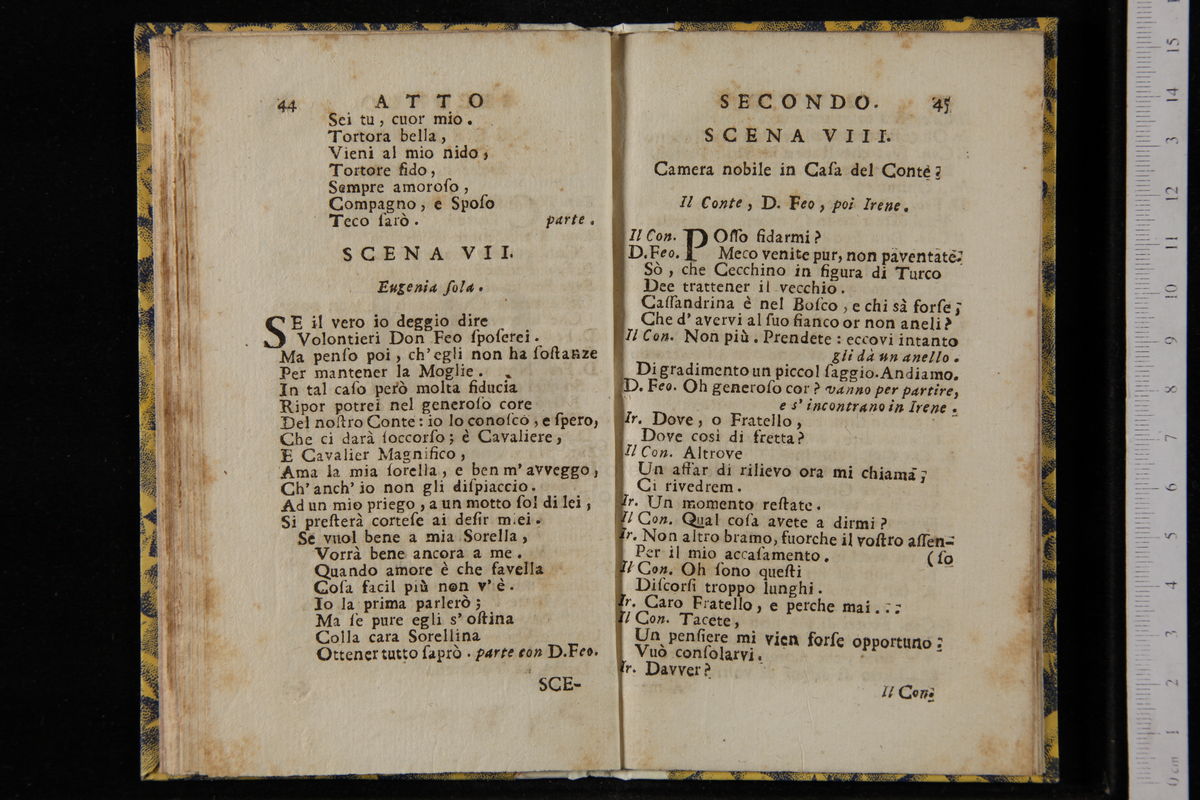 44 ATTO
Sei tu, cuor mio.
Tortora bella,
Vieni al mio nido,
Tortore fido,
Sempre amoroſo,
Compagno, e Spoſo
Teco ſarò. parte.
SCENA VII.
Eugenia ſola.
SE il vero io deggio dire
Volontieri Don Feo ſpoſerei.
Ma penſo poi, ch'egli non ha ſoſtanze
Per mantener la Moglie.
In tal caſo però molta fiducia
Ripor potrei nel generoſo core
Del noſtro Conte: io lo conoſco, e ſpero,
Che ci darà ſoccorſo; è Cavaliere,
E Cavalier Magnifico,
Ama la mia ſorella, e ben m'avveggo,
Ch'anch'io non gli diſpiaccio.
Ad un mio priego, a un motto ſol di lei,
Si preſterà corteſe ai deſir miei.
Se vuol bene a mia Sorella,
Vorrà bene ancora a me.
Quando amore è che favella
Coſa facil più non v'è.
Io la prima parlerò;
Ma ſe pure egli s'oſtina
Colla cara Sorellina
Ottener tutto ſaprò. parte con D. Feo.
SCE-
SECONDO. 45
SCENA VIII.
Camera nobile in Caſa del Conte.
Il Conte, D. Feo, poi Irene.
Il Con. POſſo fidarmi?
D. Feo. Meco venite pur, non paventate.
Sò, che Cecchino in figura di Turco
Dee trattener il vecchio.
Caſſandrina è nel Boſco, e chi sà forſe,
Che d'avervi al ſuo fianco or non aneli?
Il Con. Non più. Prendete: eccovi intanto
gli dà un anello.
Di gradimento un piccol ſaggio. Andiamo.
D. Feo. Oh generoſo cor? vanno per partire,
e s'incontrano in Irene.
Ir. Dove, o Fratello,
Dove così di fretta?
Il Con. Altrove
Un affar di rilievo ora mi chiama;
Ci rivedrem.
Ir. Un momento reſtate.
Il Con. Qual coſa avete a dirmi?
Ir. Non altro bramo, fuorche il voſtro aſſen-
Per il mio accaſamento. (ſo
Il Con. Oh ſono queſti
Diſcorſi troppo lunghi.
Ir. Caro Fratello, e perche mai...
Il Con. Tacete,
Un penſiere mi vien forſe opportuno:
Vuò conſolarvi.
Ir. Davver?
Il Con.
15
14
13
12
11
10
9
8
7
6
5
4
3
2
1
0 cm